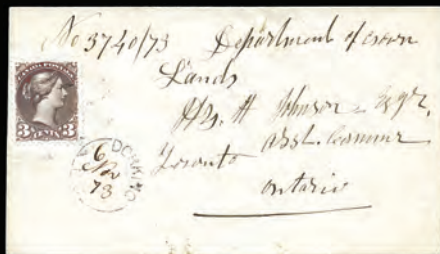 No 3740/73 Department of crown
Lands
Johnson Esqr.
Asst. Commr
Toronto
Ontario
CANADA POSTAGE
3 CENTS 3
DORKING
6
No
73